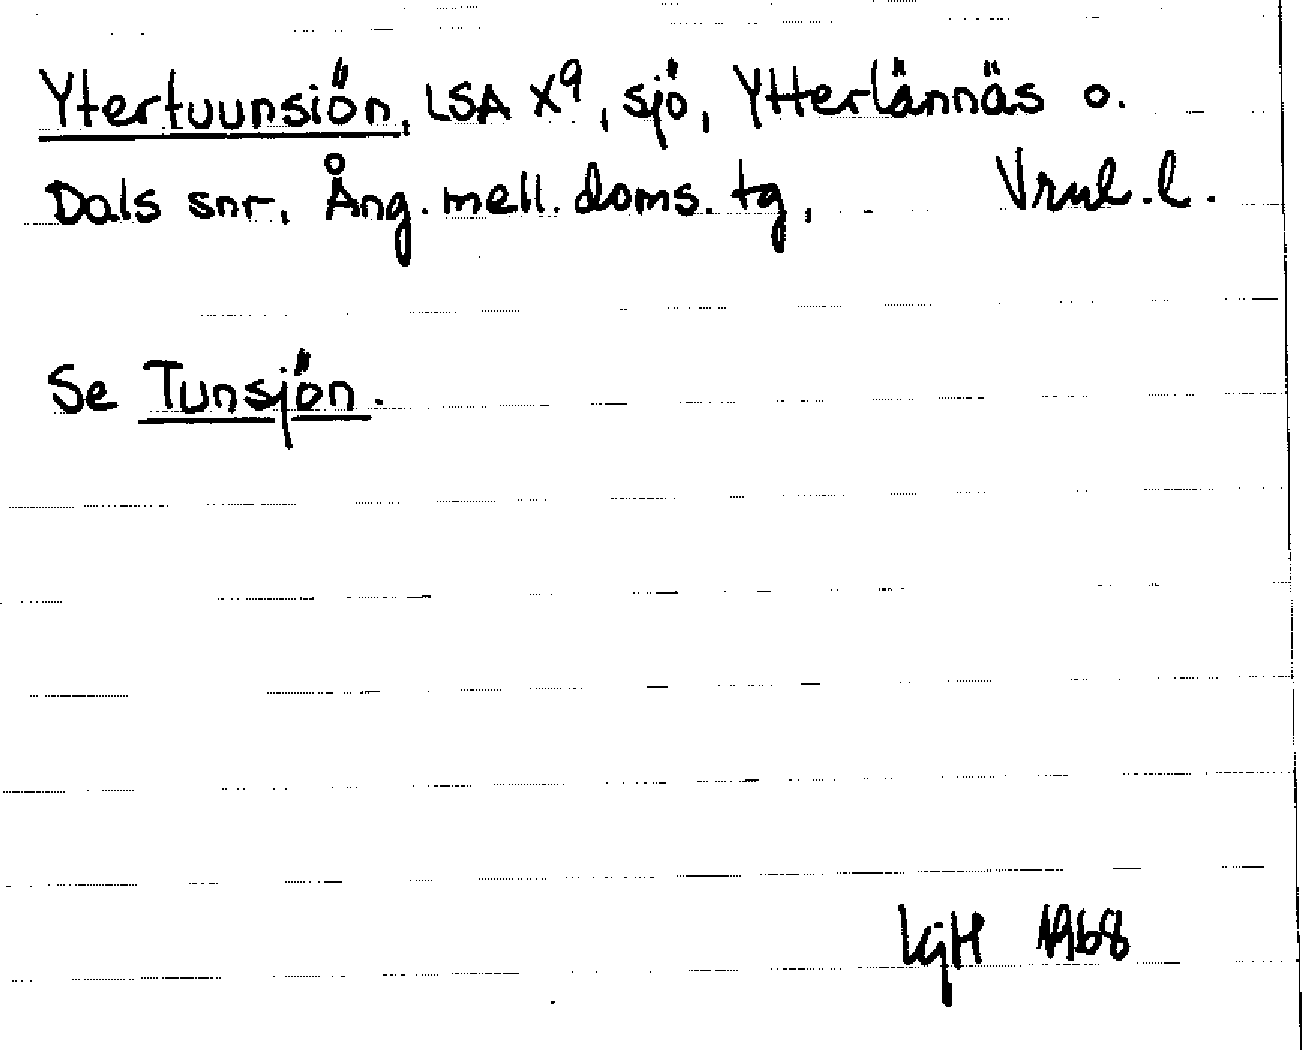 Ytertuunsiön, LSA X9, sjö, Ytterlännäs o.
Dals snr. Ång. mell. doms. tg, Vrnl. l.
Se Tunsjön.
LgH 1968